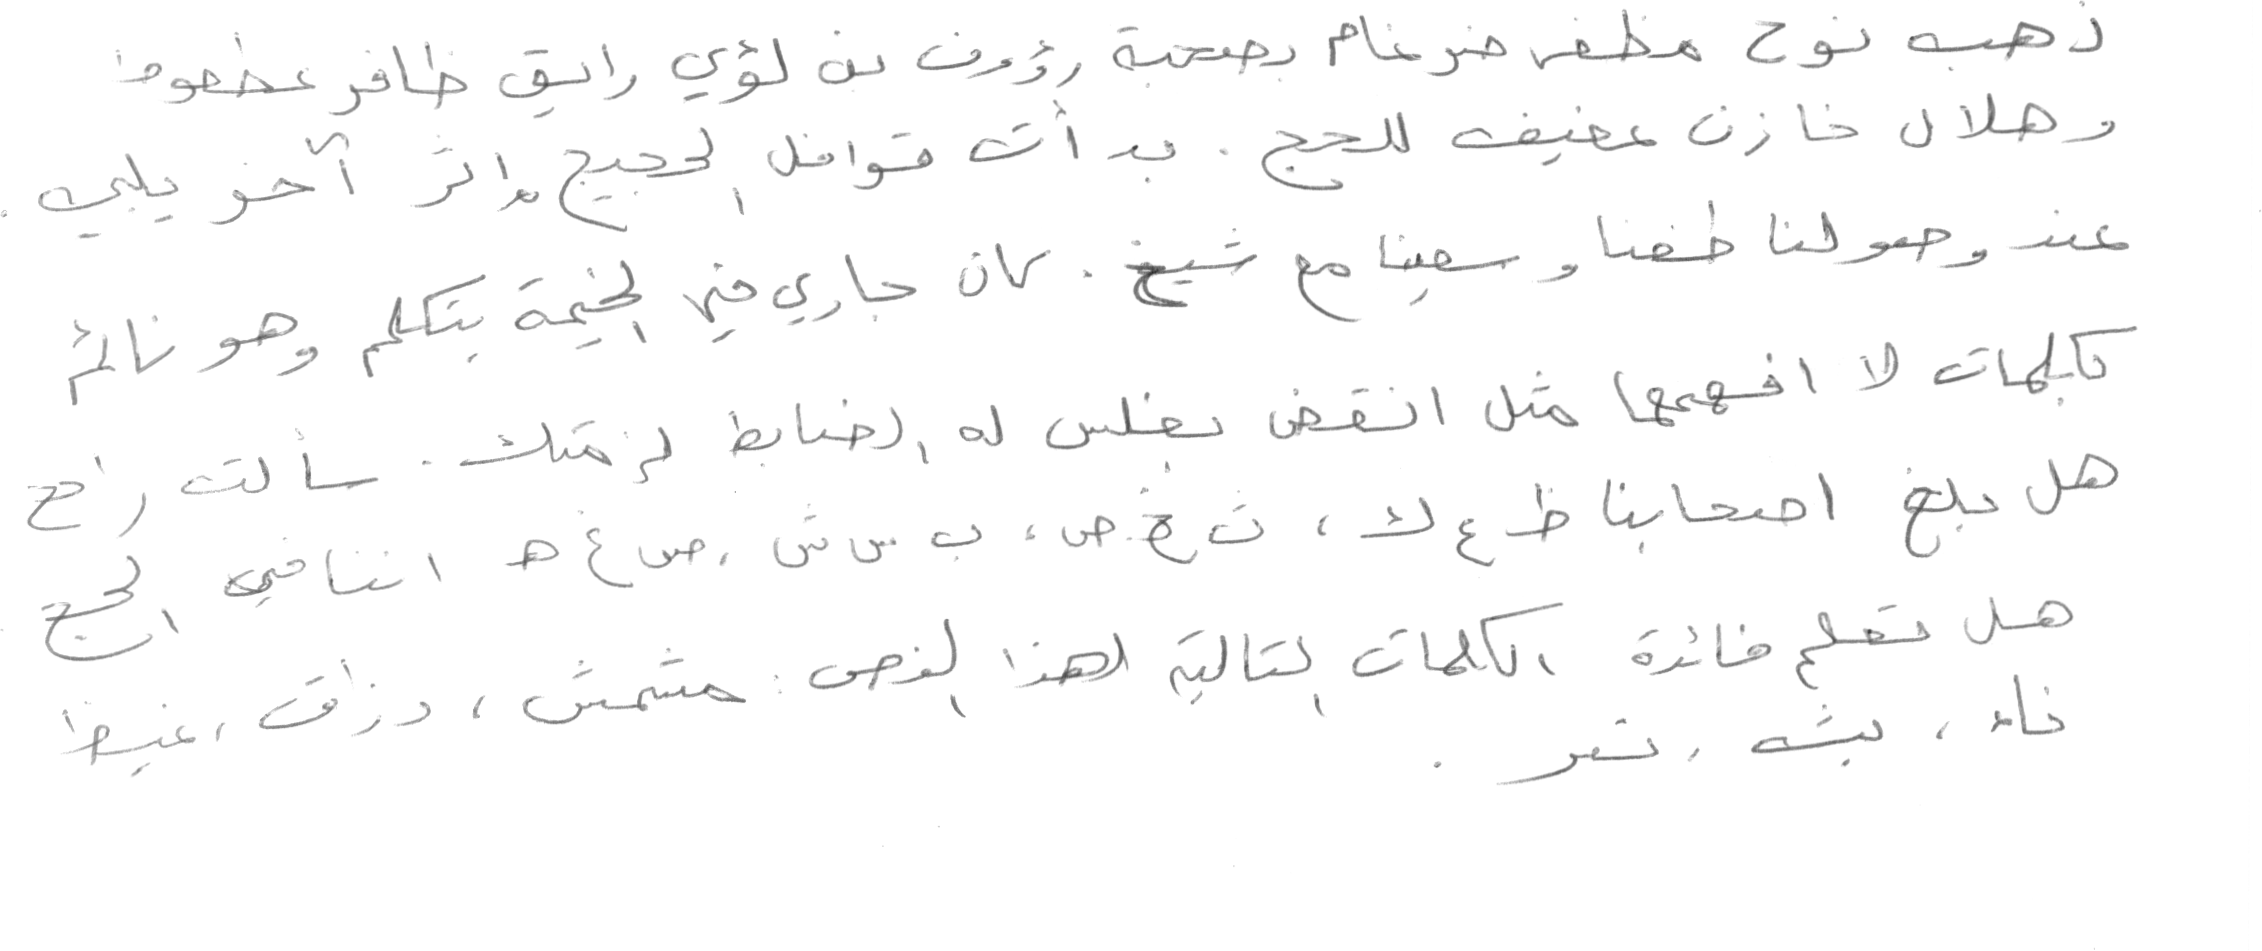 ذهب نوح مظفر ضرغام بصحبة رؤوف بن لؤي رايق ظافر عطعوط
وهلال خازن عفيف للحج . بدأت قوافل الحجيج إثر آخر يلبي .
عند وصولنا طفنا وسعينا مع شيخ . كان جاري في الخيمة يتكلم وهو نائم
بكلمات لا افهمها مثل انقض يغلس له الضابط لزمتك . سألت راجح
هل بلغ اصحابنا ظ ع ك ، ث خ ض ، ب س ش ، ص غ ه اننا في الحج
هل تعلم فائدة الكلمات التالية لهذا النص : مشمش ، دزاق ، غيظ
ناء ، بشه ، تفر .